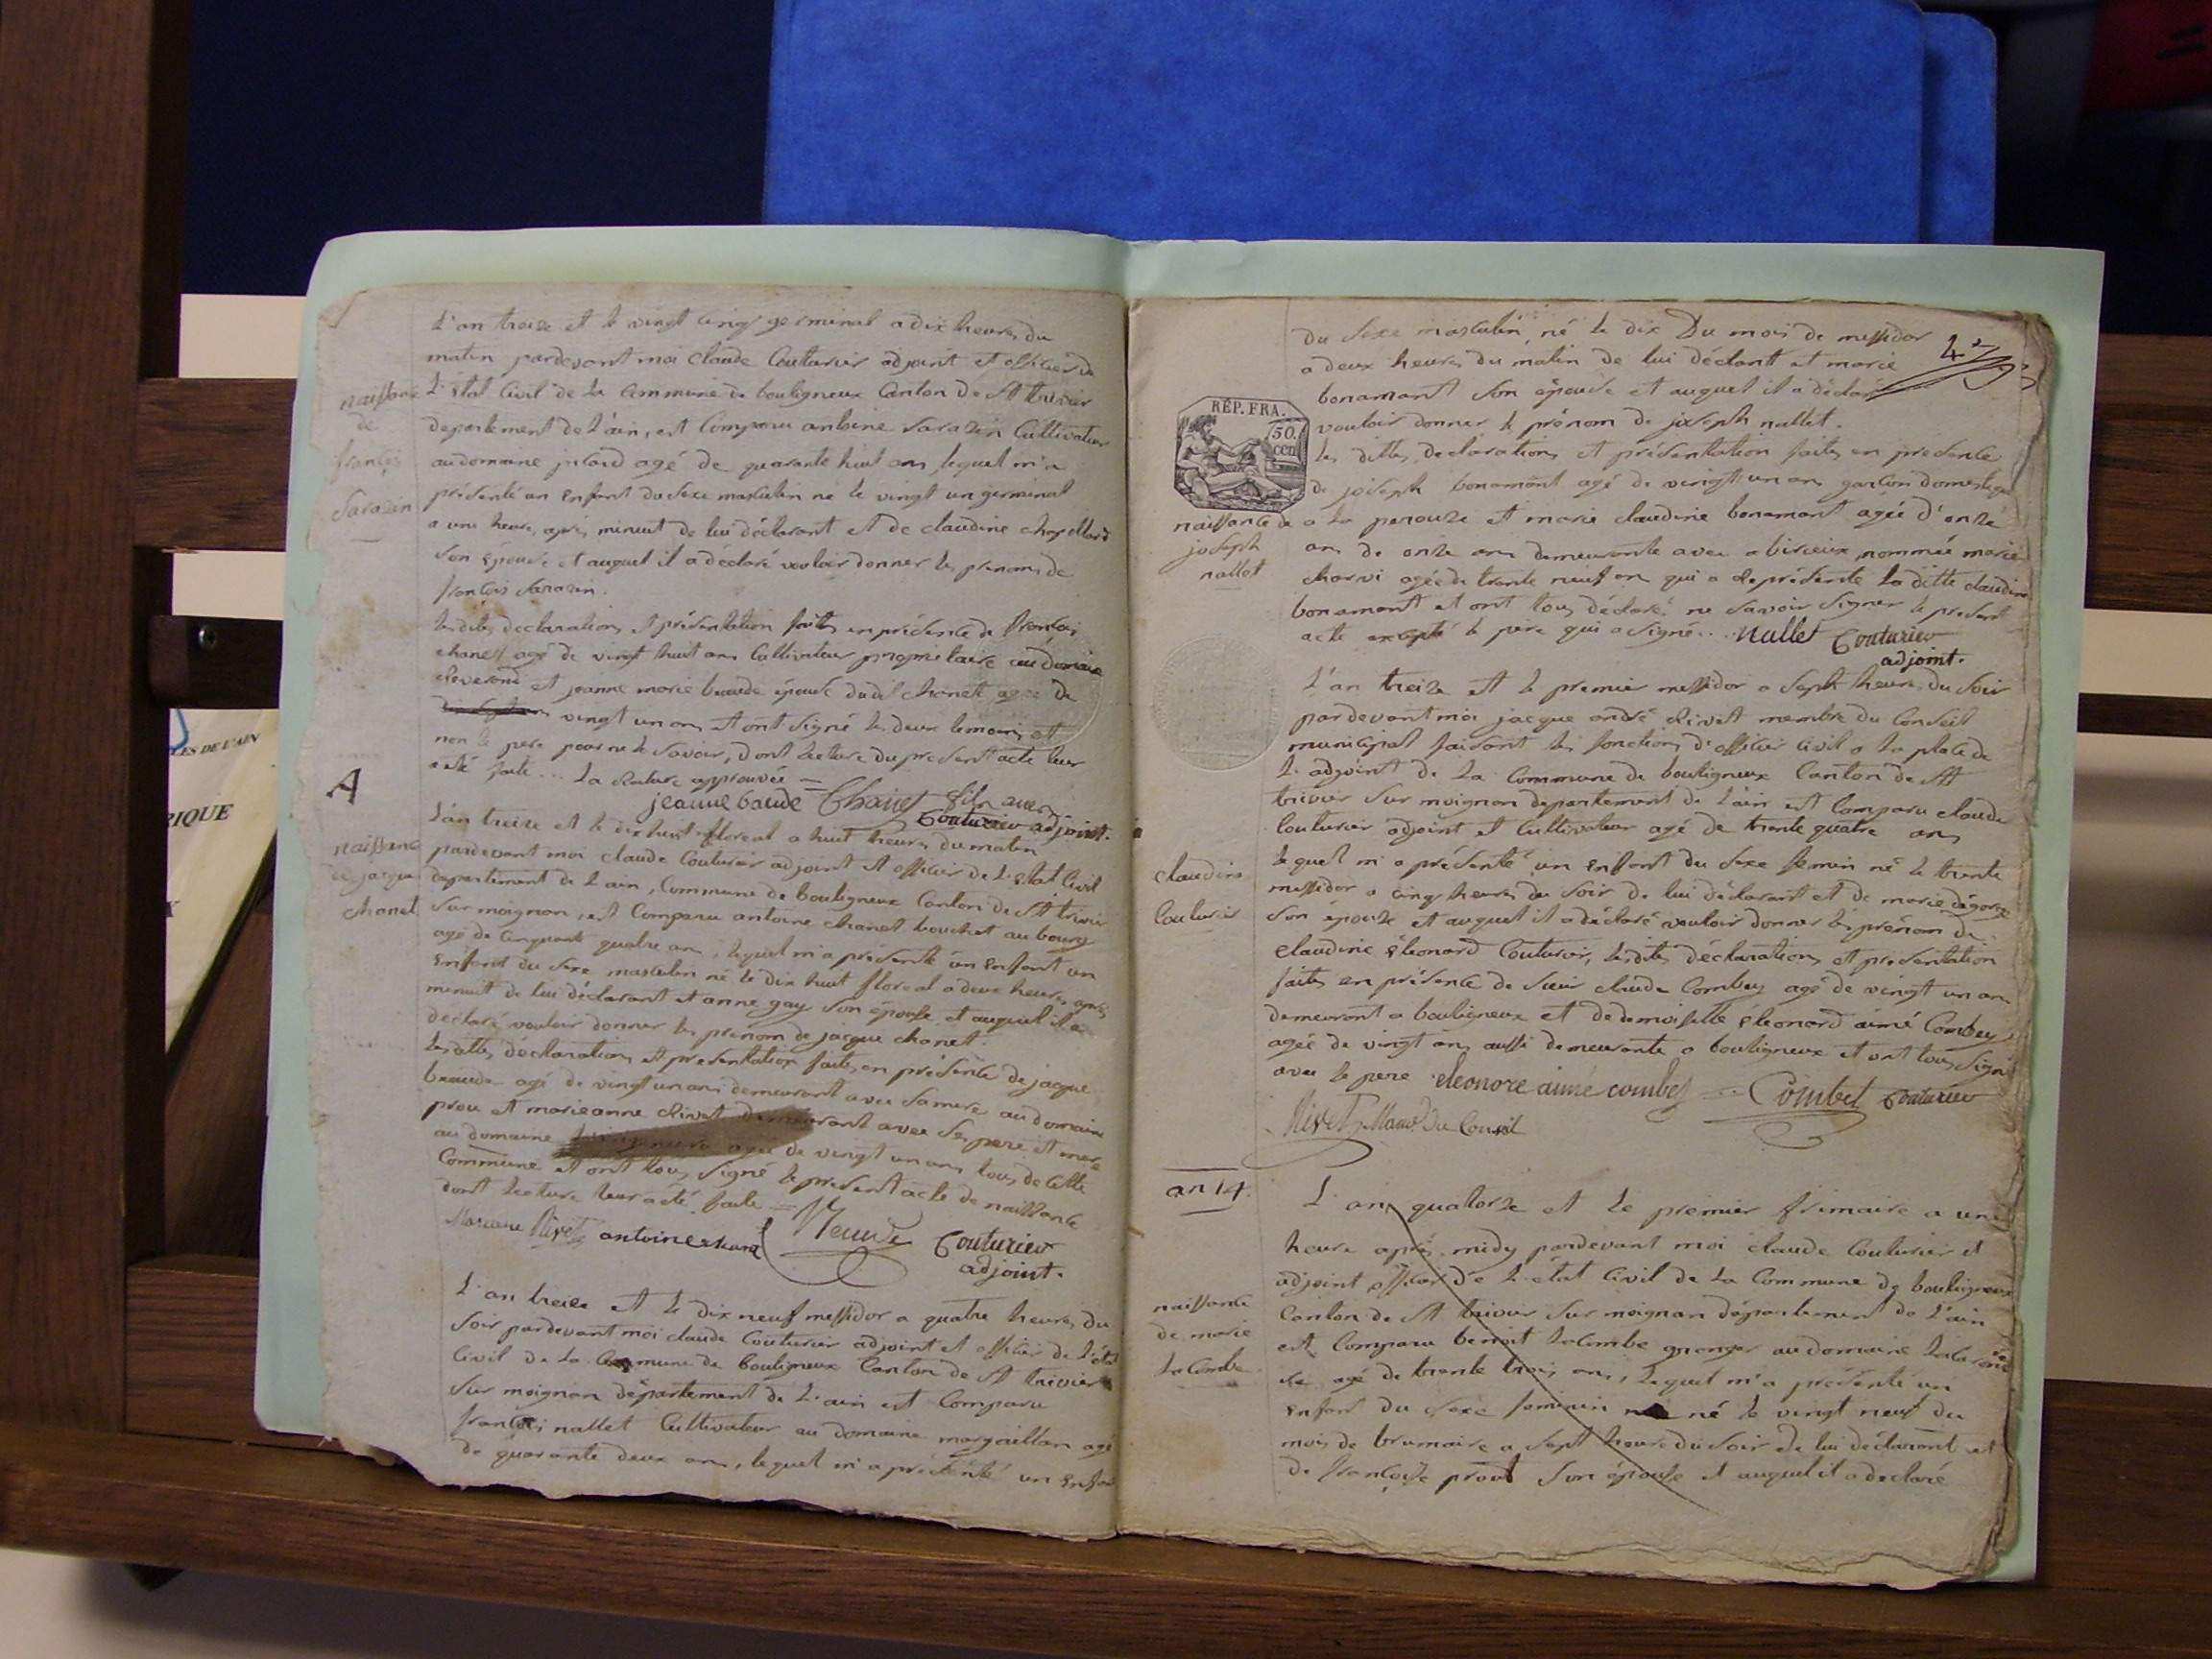 L'an treize et le vingt cinq germinal a dix heures du
matin pardevant moi claude Couturier adjoint et officier de
L'Etat Civil de La Commune de bouligneux Canton de St trivier
departement de L'ain, est Comparu antoine Sarazin Cultivateur
au domaine agé de quarante huit ans lequel m'a
présenté un Enfant du Sexe masculin né le vingt un germinal
a une heure après minuit de lui déclarant et de claudine
Son Epouse et auquel il a déclaré vouloir donner les prenoms de
françois Sarazin.
naissance
de
françois
Sarazin
les dites declarations et présentation faites en présence de francois
chanet agé de vingt huit ans Cultivateur proprietaire au domaine
et jeanne marie baude épouse dudit chanet agée de
vingt un ans et ont Signé les deux temoins et
non le pere pour ne le Savoir, dont Lecture du present acte leur
a eté faite... La Rature approuvée =
jeanne baude = Chanet
Couturier adjoint.
A
L'an treize et le dix huit floreal a huit heures du matin
pardevant moi claude Couturier adjoint et officier de L'Etat Civil
departement de L'ain, Commune de bouligneux Canton de St trivier
Sur moignan, est Comparu antoine chanet au bourg
agé de Cinquante quatre ans, lequel m'a présenté un Enfant un
Enfant du Sexe masculin né le dix huit floreal a deux heures après
minuit de lui déclarant et anne gay Son épouse et auquel il a
declaré vouloir donner les prenom de jacque chanet.
naissance
de jacque
chanet
les dittes déclarations et presentation faites en présence de jacque
agé de vingt un ans demeurant avec Sa mere au domaine
prou et marieanne Rivet demeurant avec Ses pere et mere
au domaine agée de vingt un ans tous de Cette
Commune et ont tous Signé le present acte de naissance
dont Lecture leur a été faite =
Rivet antoine chanet Couturier
adjoint.
L'an treize et le dix neuf messidor a quatre heures du
Soir pardevant moi claude Couturier adjoint et officier de L'état
Civil de La Commune de bouligneux Canton de St trivier
Sur moignan département de L'ain est Comparu
françois nallet Cultivateur au domaine margaillan agé
de quarante deux ans, lequel m'a présenté un Enfant
du Sexe masculin, né le dix Du mois de messidor
a deux heures du matin de lui déclarant et marie
bonamant Son épouse et auquel il a déclaré
vouloir donner le prénom de joseph nallet.
RÉP. FRA.
50.
cen
les dittes declarations et présentation faites en presence
de joseph bonamant agé de vingt un ans garçon domestique
a la perouze et marie claudine bonamant agée d'onze
ans de onze ans demeurante avec a birieux nommée marie
charvi agée de trente neuf an qui a Représenté La ditte claudine
bonamant et ont tous déclaré ne Savoir Signer le present
acte excepté le pere qui a Signé... Nallet Couturier
adjoint.
naissance de
joseph
nallet
L'an treize et le premier messidor a Sept heures du Soir
pardevant moi jacque andré Rivet membre du Conseil
municipal faisant les fonctions d'officier Civil a La place de
L'adjoint de La Commune de bouligneux Canton de St
trivier Sur moignan departement de L'ain est Comparu claude
Couturier adjoint et Cultivateur agé de trente quatre ans
lequel m'a présenté un Enfant du Sexe femin né le trente
messidor a cinq heures du Soir de lui déclarant et de marie
Son épouse et auquel il a déclaré vouloir donner les prénom de
claudine Eleonard Couturier, les dites déclarations et presentation
faites en présence de Sieur claude Combey agé de vingt un an
demeurant a bouligneux et de demoiselle Eleonard aimé Combey
agée de vingt ans aussi demeurante a bouligneux et ont tous Signé
avec le pere eleonore aimé combet = Combet Couturier
Rivet Du Conseil
claudine
Couturier
an 14.
L'an quatorze et Le premier frimaire a une
heure après midy pardevant moi claude Couturier et
adjoint officier de L'état Civil de La Commune de bouligneux
Canton de St trivier Sur moignan département de L'ain
est Comparu benoit Lacombe granger au domaine
agé de trente trois ans, Lequel m'a présenté un
Enfant du Sexe feminin né le vingt neuf du
mois de brumaire a Sept heures du Soir de lui déclarant et
de françoise prout Son épouse et auquel il a declaré
naissance
de marie
LaCombe
LES DE L'AIN
RIQUE